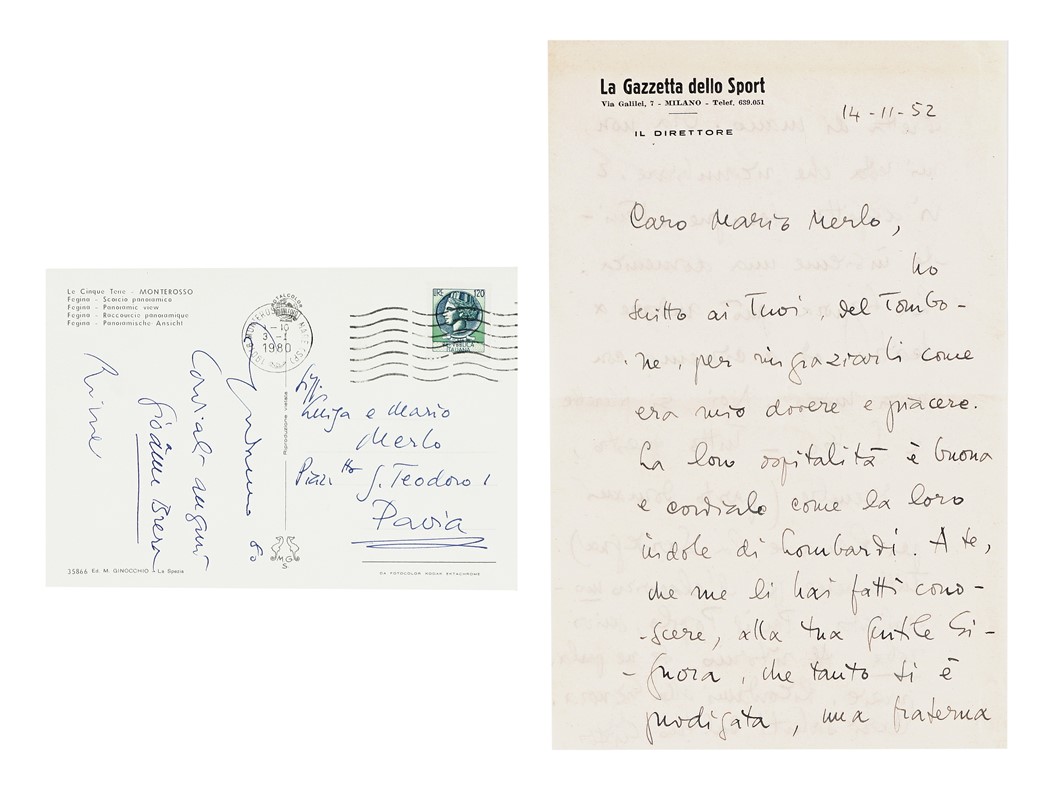 Le Cinque Terre - MONTEROSSO
Fegina - Scorcio panoramico
Fegina - Panoramic view
Fegina - Raccourcis panoramique
Fegina - Panoramische Ansicht
3-1
1980
LIRE 120
REPUBBLICA
ITALIANA
Cordiali auguri
Giôânn Brera
Rina
80
Riproduzione vietata
Luisa e Mario
Merlo
Piazz.tta S. Teodoro 1
Pavia
M G
S
35866 Ed. M. GINOCCHIO - La Spezia
DA FOTOCOLOR KODAK EKTACHROME
La Gazzetta dello Sport
Via Galilei, 7 - MILANO - Telef. 639.051
IL DIRETTORE
14-11-52
Caro Mario Merlo,
ho
scritto ai Tuoi, del Tombo-
ne, per ringraziarli come
era mio dovere e piacere.
La loro ospitalità è buona
e cordiale come la loro
indole di Lombardi. A te,
che me li hai fatti cono-
-scere, alla tua gentile Si-
-gnora, che tanto si è
prodigata, una fraterna